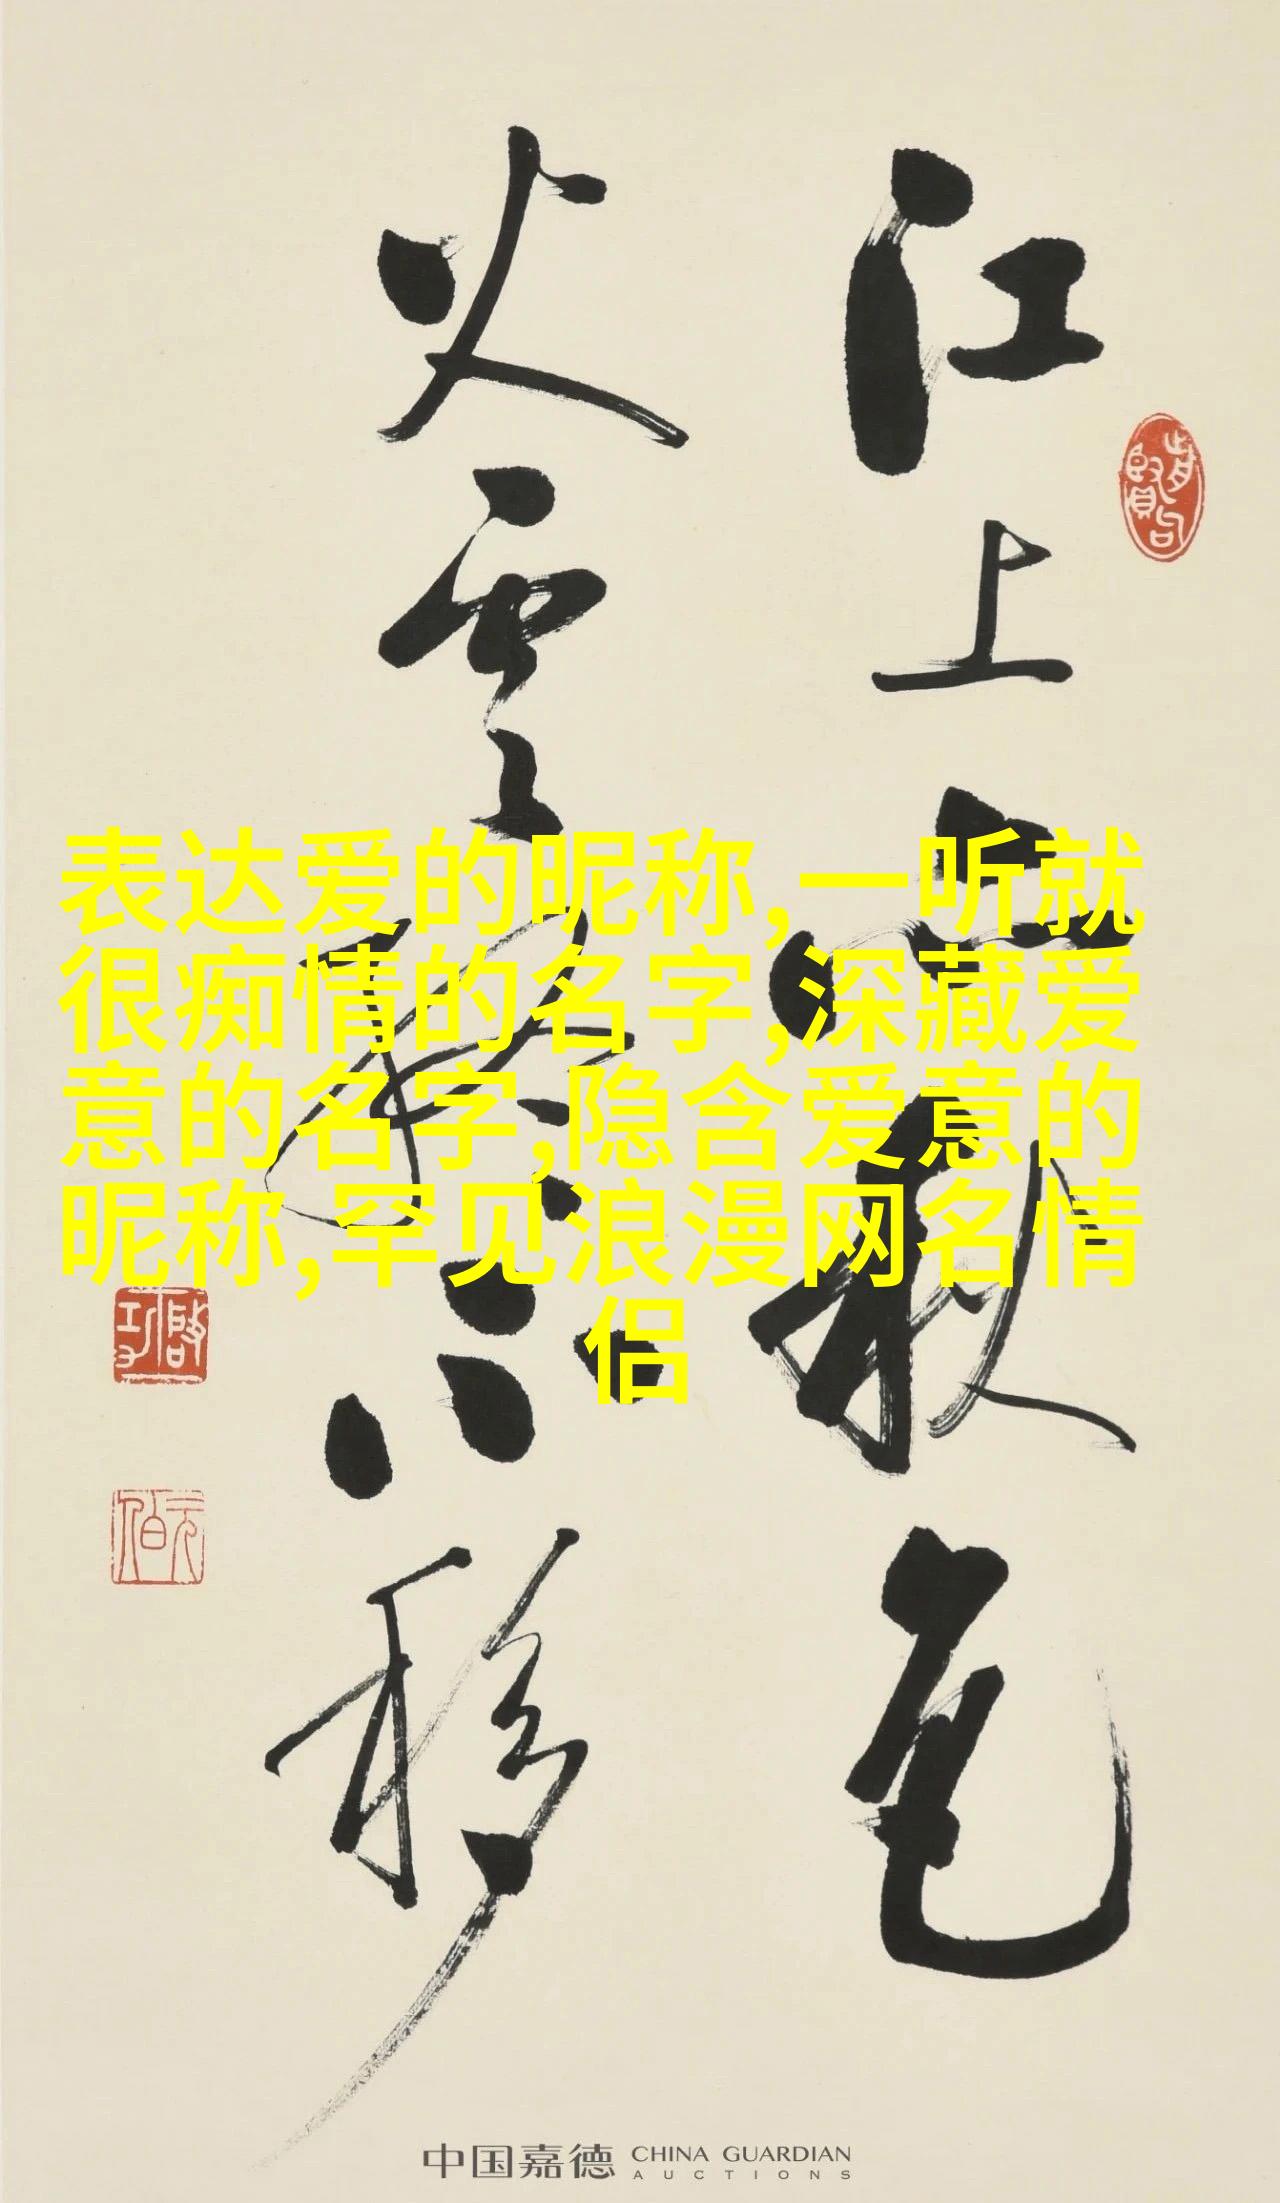 江上亦秋色
火雲終不移
表达爱的昵称,一听就
很痴情的名字,深藏爱
意的名字,隐含爱意的
昵称,罕见浪漫网名情
侣
啟功
元白
中国嘉德 CHINA GUARDIAN
AUCTIONS